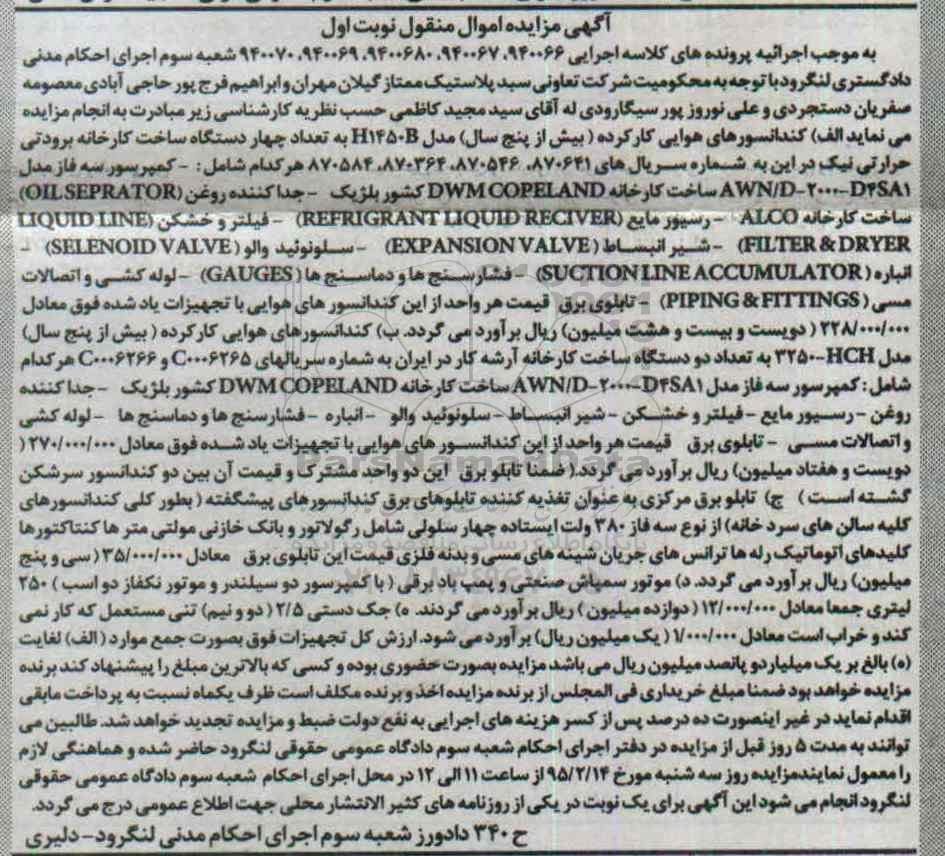 آگهی مزایده اموال منقول نوبت اول
به موجب اجرائیه پرونده های کلاسه اجرایی ۹۴۰۰۶۶، ۹۴۰۰۶۷، ۹۴۰۰۶۸۰، ۹۴۰۰۶۹، ۹۴۰۰۷۰ شعبه سوم اجرای احکام مدنی
دادگستری لنگرود با توجه به محکومیت شرکت تعاونی سبد پلاستیک ممتاز گیلان مهران و ابراهیم فرج پور حاجی آبادی معصومه
صفریان دستجردی و علی نوروز پور سیگارودی له آقای سید مجید کاظمی حسب نظریه کارشناسی زیر مبادرت به انجام مزایده
می نماید الف) کندانسورهای هوایی کارکرده ( بیش از پنج سال) مدل H۱۴۵۰B به تعداد چهار دستگاه ساخت کارخانه برودتی
حرارتی نیک در این به شماره سریال های ۸۷۰۶۴۱، ۸۷۰۵۴۶، ۸۷۰۳۶۴، ۸۷۰۵۸۴ هرکدام شامل : - کمپرسور سه فاز مدل
AWN/D-۲۰۰۰-D۴SA۱ ساخت کارخانه DWM COPELAND کشور بلژیک - جدا کننده روغن (OIL SEPRATOR)
ساخت کارخانه ALCO - رسیور مایع (REFRIGRANT LIQUID RECIVER) - فیلتر و خشکن (LIQUID LINE
FILTER & DRYER) - شیر انبساط (EXPANSION VALVE) - سلونوئید والو (SELENOID VALVE) -
انباره (SUCTION LINE ACCUMULATOR) - فشارسنج ها و دماسنج ها (GAUGES) - لوله کشی و اتصالات
مسی (PIPING & FITTINGS) - تابلوی برق قیمت هر واحد از این کندانسور های هوایی با تجهیزات یاد شده فوق معادل
۲۲۸/۰۰۰/۰۰۰ ( دویست و بیست و هشت میلیون) ریال برآورد می گردد. ب) کندانسورهای هوایی کارکرده ( بیش از پنج سال)
مدل ۳۲۵۰-HCH به تعداد دو دستگاه ساخت کارخانه آرشه کار در ایران به شماره سریالهای C۰۰۰۶۲۶۵ و C۰۰۰۶۲۶۶ هرکدام
شامل : کمپرسور سه فاز مدل AWN/D-۲۰۰۰-D۴SA۱ ساخت کارخانه DWM COPELAND کشور بلژیک - جدا کننده
روغن - رسیور مایع - فیلتر و خشکن - شیر انبساط - سلونوئید والو - انباره - فشارسنج ها و دماسنج ها - لوله کشی
و اتصالات مسی - تابلوی برق قیمت هر واحد از این کندانسور های هوایی با تجهیزات یاد شده فوق معادل ۲۷۰/۰۰۰/۰۰۰ (
دویست و هفتاد میلیون) ریال برآورد می گردد. ( ضمنا تابلو برق این دو واحد مشترک و قیمت آن بین دو کندانسور سرشکن
گشته است ) ج) تابلو برق مرکزی به عنوان تغذیه کننده تابلوهای برق کندانسورهای پیشگفته ( بطور کلی کندانسورهای
کلیه سالن های سرد خانه) از نوع سه فاز ۳۸۰ ولت ایستاده چهار سلولی شامل رگولاتور و بانک خازنی مولتی متر ها کنتاکتورها
کلیدهای اتوماتیک رله ها ترانس های جریان شینه های مسی و بدنه فلزی قیمت این تابلوی برق معادل ۳۵/۰۰۰/۰۰۰ (سی و پنج
میلیون) ریال برآورد می گردد. د) موتور سمپاش صنعتی و پمپ باد برقی ( با کمپرسور دو سیلندر و موتور تکفاز دو اسب ) ۲۵۰
لیتری جمعا معادل ۱۲/۰۰۰/۰۰۰ ( دوازده میلیون ) ریال برآورد می گردند. ه) جک دستی ۲/۵ ( دو و نیم) تنی مستعمل که کار نمی
کند و خراب است معادل ۱/۰۰۰/۰۰۰ ( یک میلیون ریال) برآورد می شود. ارزش کل تجهیزات فوق بصورت جمع موارد ( الف) لغایت
(ه) بالغ بر یک میلیارد و پانصد میلیون ریال می باشد مزایده بصورت حضوری بوده و کسی که بالاترین مبلغ را پیشنهاد کند برنده
مزایده خواهد بود ضمنا مبلغ خریداری فی المجلس از برنده مزایده اخذ و برنده مکلف است ظرف یکماه نسبت به پرداخت مابقی
اقدام نماید در غیر اینصورت ده درصد پس از کسر هزینه های اجرایی به نفع دولت ضبط و مزایده تجدید خواهد شد. طالبین می
توانند به مدت ۵ روز قبل از مزایده در دفتر اجرای احکام شعبه سوم دادگاه عمومی حقوقی لنگرود حاضر شده و هماهنگی لازم
را معمول نمایند مزایده روز سه شنبه مورخ ۹۵/۲/۱۴ از ساعت ۱۱ الی ۱۲ در محل اجرای احکام شعبه سوم دادگاه عمومی حقوقی
لنگرود انجام می شود این آگهی برای یک نوبت در یکی از روزنامه های کثیر الانتشار محلی جهت اطلاع عمومی درج می گردد.
ح ۳۴۰ دادورز شعبه سوم اجرای احکام مدنی لنگرود - دلیری